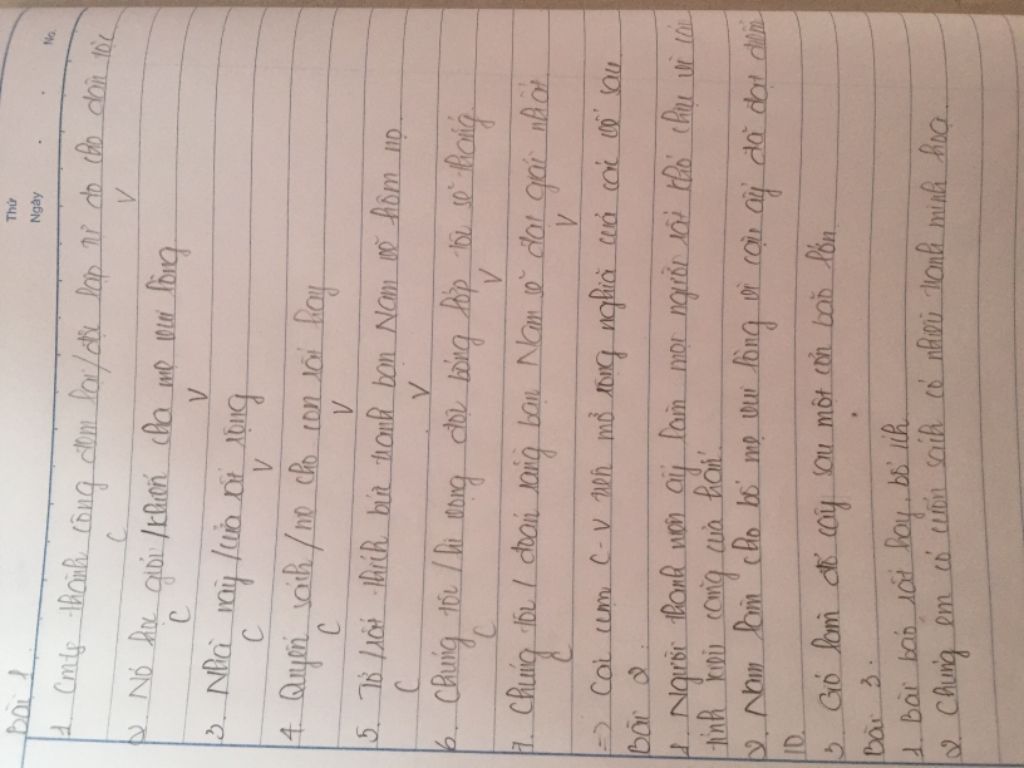 Thứ
Ngày
No.
Bài 1
1. Cmt8 thành công đem lại / độc lập tự do cho dân tộc
C V
2. Nó học giỏi / khiến cha mẹ vui lòng
C V
3. Nhà này / cửa rất rộng
C V
4. Quyển sách / mẹ cho con rất hay
C V
5. Tớ / rất thích bức tranh bạn Nam vẽ hôm nọ
C V
6. Chúng tôi / hi vọng đội bóng lớp tôi sẽ thắng
C V
7. Chúng tôi / đoán rằng bạn Nam sẽ đạt giải nhất
C V
=> Các cụm C-V trên mở rộng nghĩa của các vế sau
Bài 2
1. Người thanh niên ấy làm mọi người rất khó chịu vì cái
tính ương của hắn.
2. Nam làm cho bố mẹ vui lòng vì cậu ấy đã đạt điểm
10
3. Gió làm đổ cây sau một cơn bão lớn
Bài 3.
1. Bài báo rất hay, bổ ích
2. Chúng em có cuốn sách có nhiều tranh minh họa